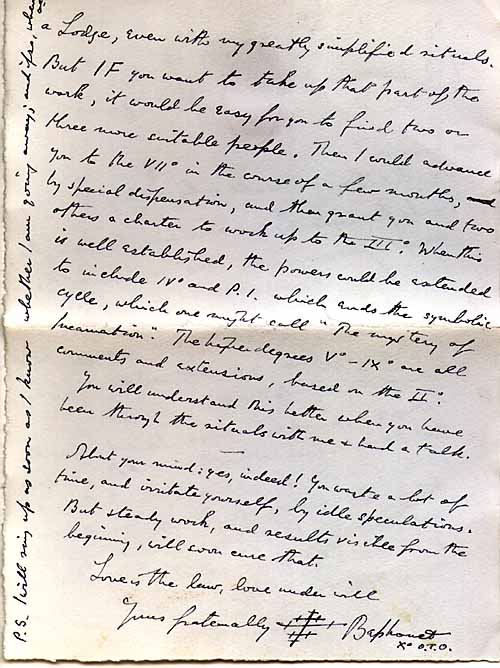 a Lodge, even with my greatly simplified rituals.
But IF you want to take up that part of the
work, it would be easy for you to find two or
three more suitable people. Then I would advance
you to the VII° in the course of a few months,
by special dispensation, and then grant you and two
others a charter to work up to the III°. When this
is well established, the powers could be extended
to include IV° and P.I. which ends the symbolic
cycle, which one might call "The mystery of
Incarnation". The higher degrees V°-IX° are all
comments and extensions, based on the II°.
You will understand this better when you have
been through the rituals with me & had a talk.
About your mind: yes, indeed! You waste a lot of
time, and irritate yourself, by idle speculations.
But steady work, and results visible from the
begining, will soon cure that.
Love is the law, love under will
Yours fraternally Baphomet
X° O.T.O.
P.S. I will ring up as soon as I know whether I am going away; and if so, when